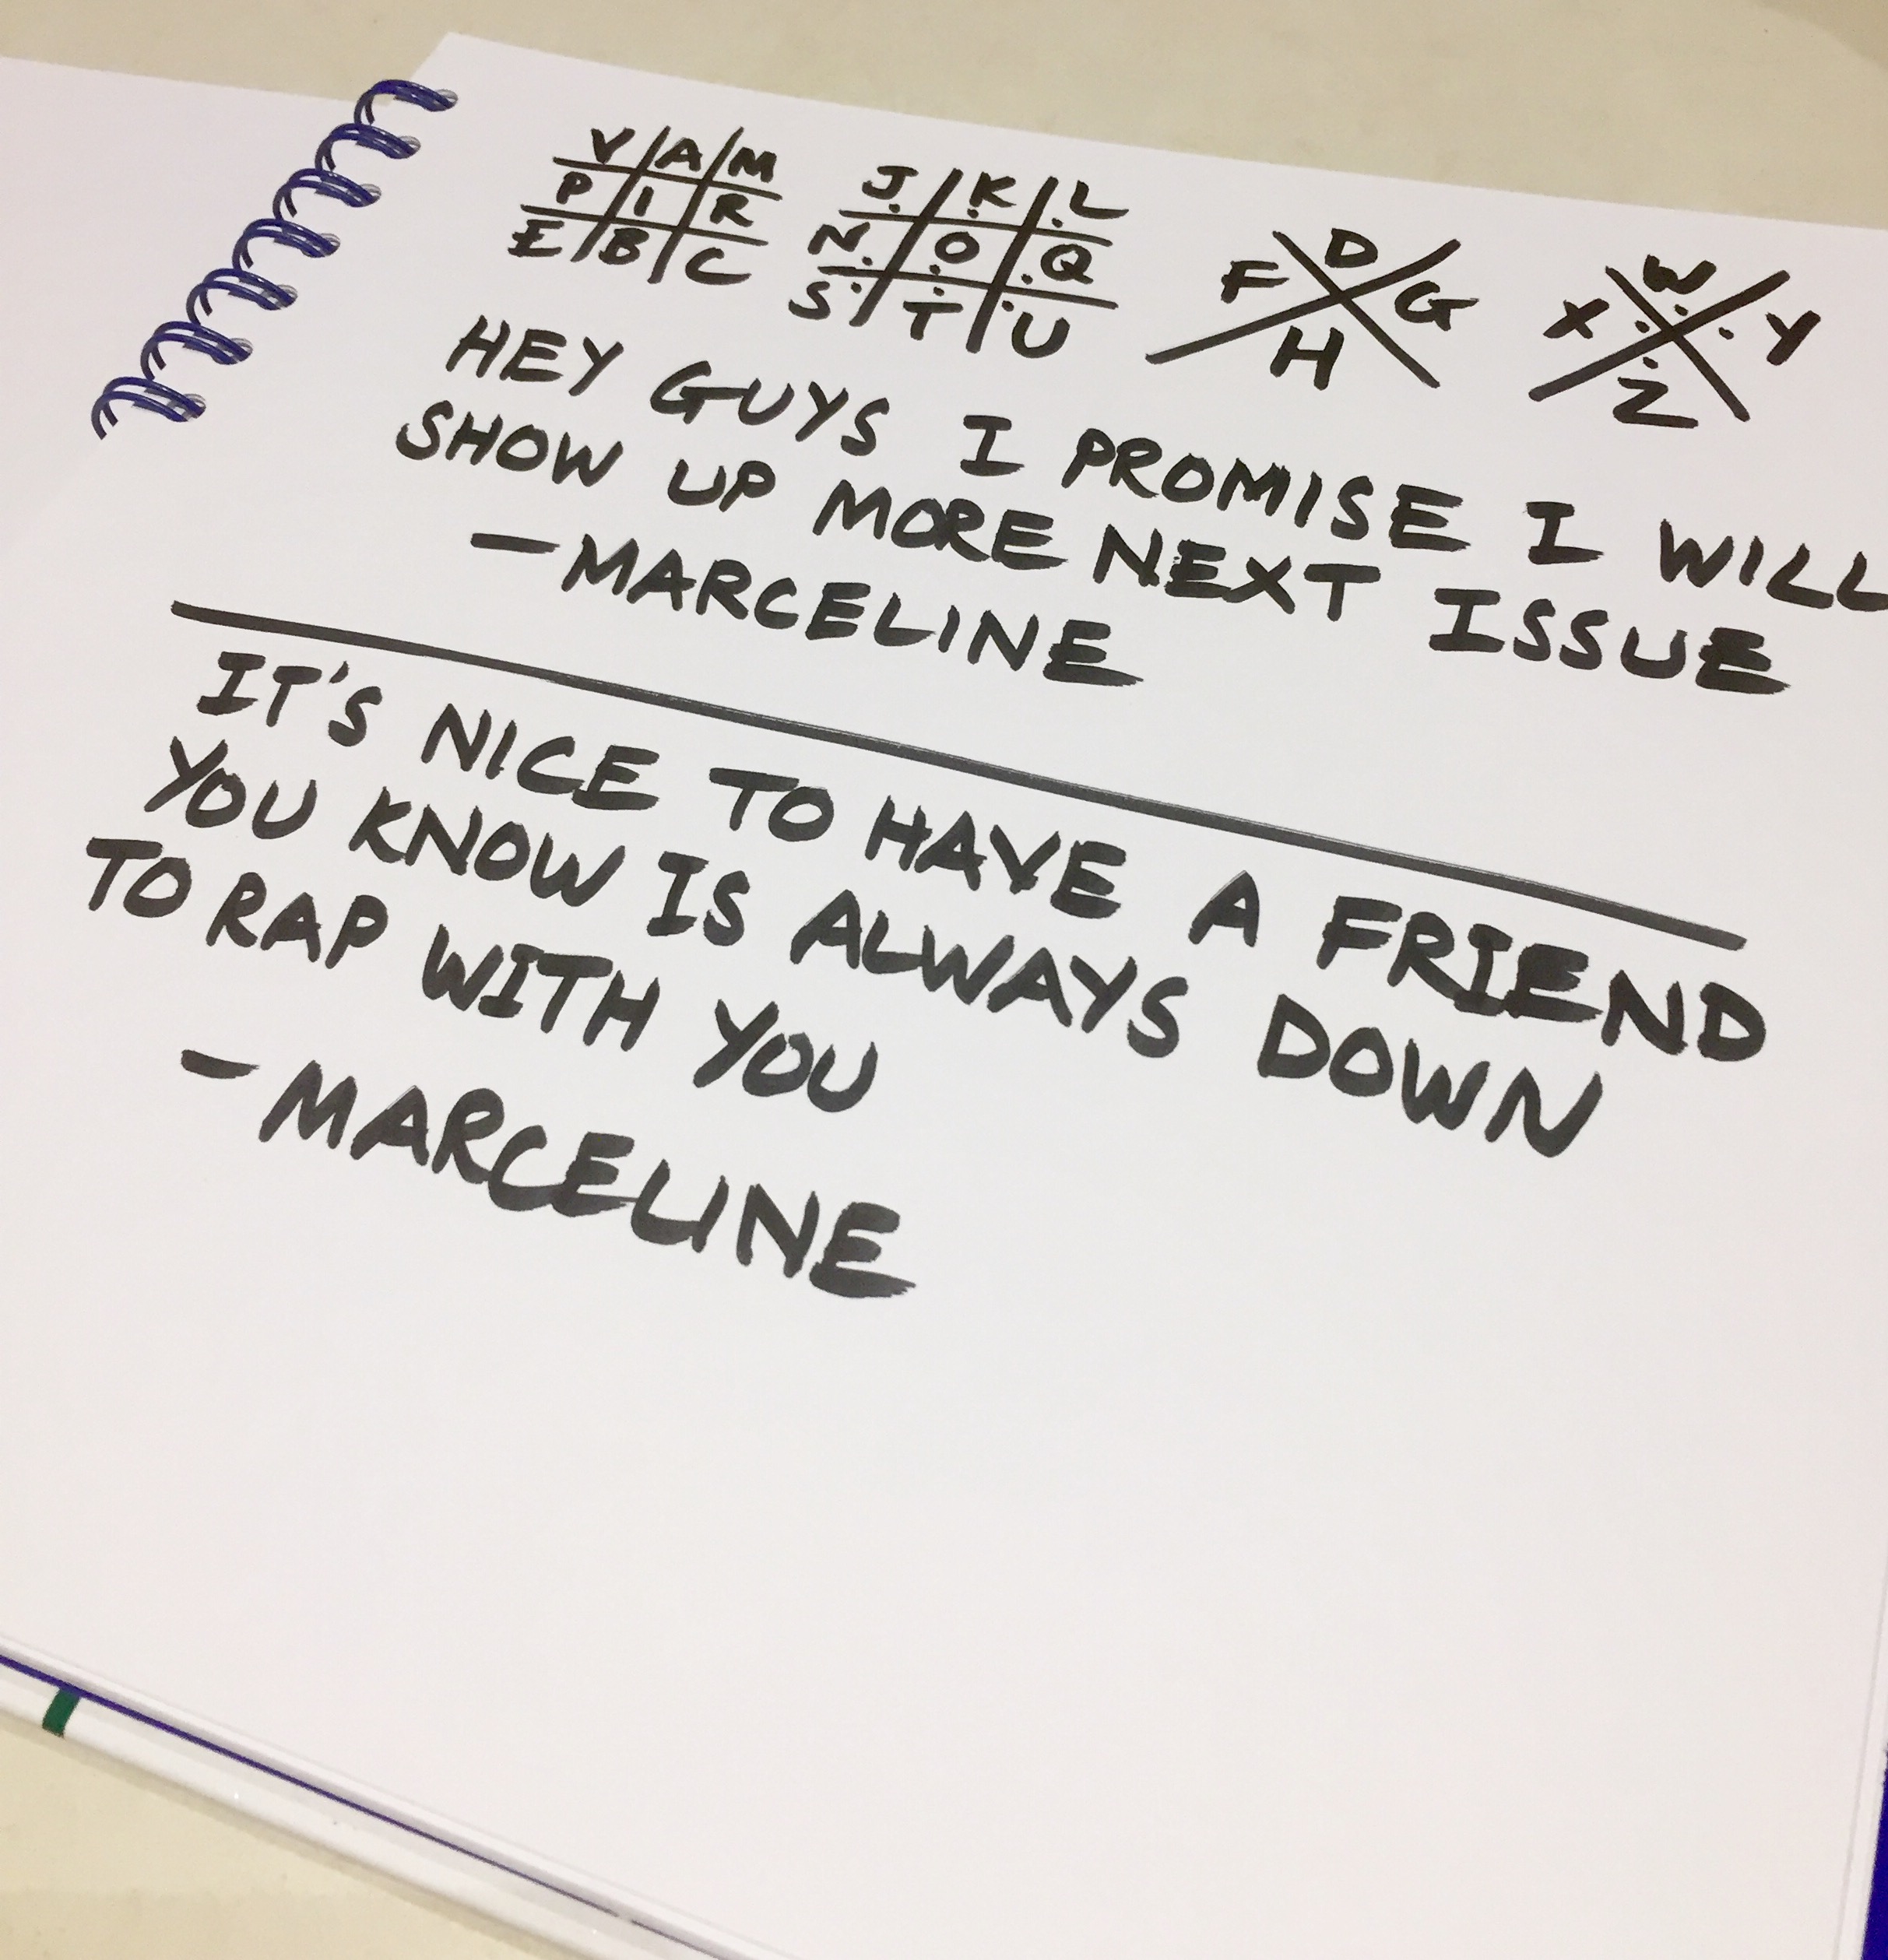 V A M J K L D W
P I R N O Q F G X Y
E B C S T U H Z
HEY GUYS I PROMISE I WILL
SHOW UP MORE NEXT ISSUE
—MARCELINE
IT'S NICE TO HAVE A FRIEND
YOU KNOW IS ALWAYS DOWN
TO RAP WITH YOU
—MARCELINE